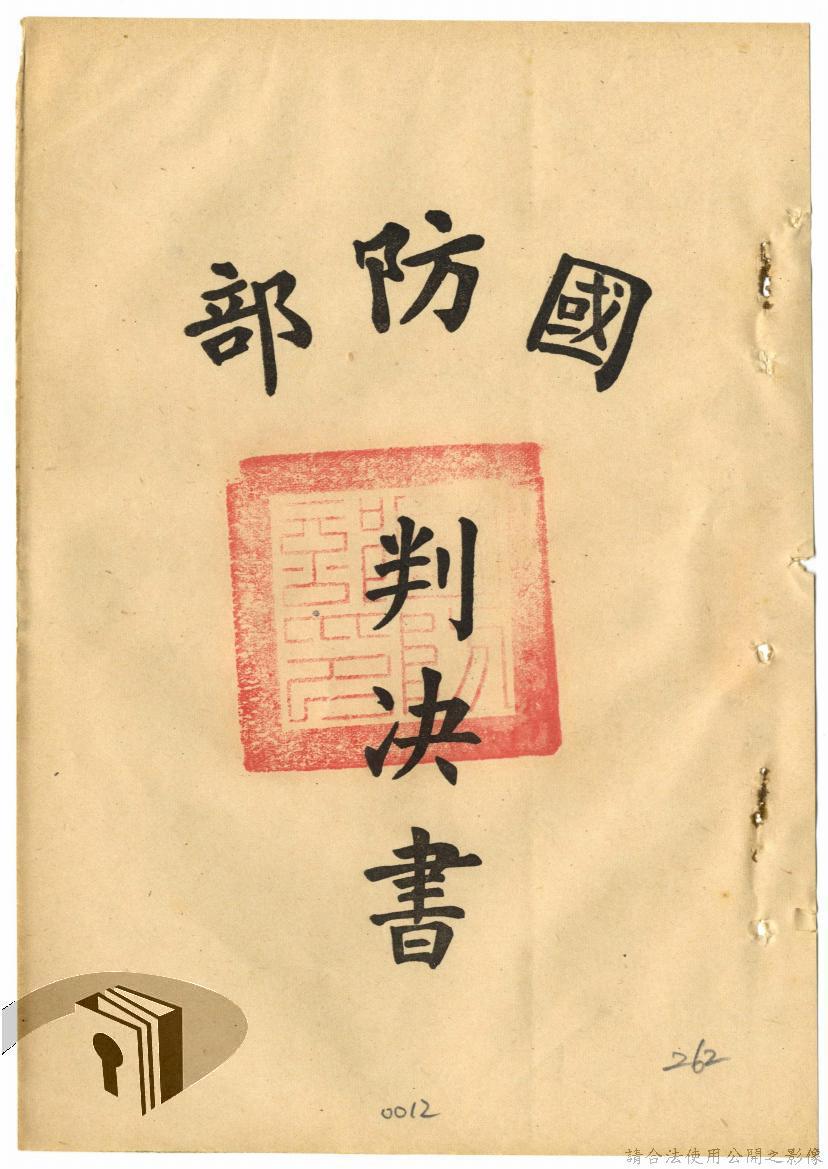 國防部
判決書
262
0012
請合法使用公開之影像